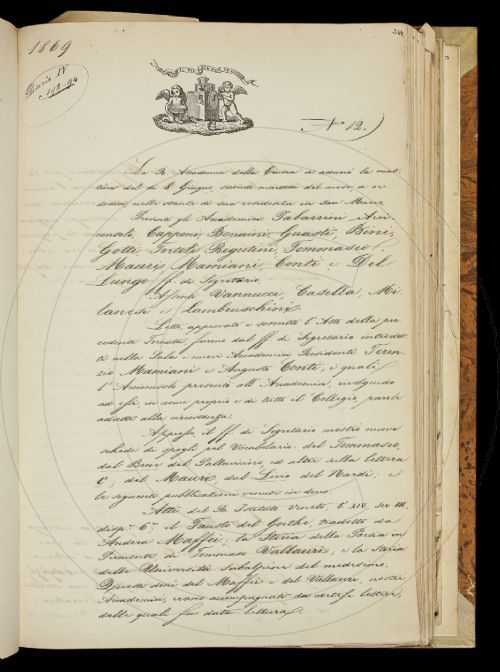 1869
Diario IV
c. 193-94
264
N.° 12.
La R. Accademia della Crusca si adunò la mat-
tina del dì 8 Giugno, secondo martedì del mese, a ore
dodici nelle stanze di sua residenza in San Marco.
Presenti gli Accademici Tabarrini Arci-
consolo, Capponi, Bonaini, Guasti, Bini,
Gotti, Tortoli, Rigutini, Tommaseo,
Mauri, Mamiani, Conti e Del
Lungo ff. di Segretario.
Assenti Vannucci, Casella, Mi-
lanesi e Lambruschini.
Letto, approvato e soscritto l'Atto della pre-
cedente Tornata, furono dal ff. di Segretario introdotti
nella Sala i nuovi Accademici Residenti Teren-
zio Mamiani e Augusto Conti, i quali
l'Arciconsolo presentò all'Accademia, rivolgendo
ad essi, in nome proprio e di tutto il Collegio, parole
adatte alla circostanza.
Appresso il ff. di Segretario mostrò nuove
schede di spogli pel Vocabolario: del Tommaseo,
dal Bene del Pallavicino, ed altri sulla lettera
C; del Mauri, del Livio del Nardi; e
le seguenti pubblicazioni venute in dono.
Atti del R. Istituto Veneto, t.° XIV, ser. III,
disp.ª 6.ª il Fausto del Goethe tradotto da
Andrea Maffei; la Storia della Poesia in
Piemonte di Tommaso Vallauri, e la Storia
delle Università Subalpine del medesimo.
Questi doni del Maffei e del Vallauri, nostri
Accademici, erano accompagnati da cortesi lettere,
delle quali fu data lettura.